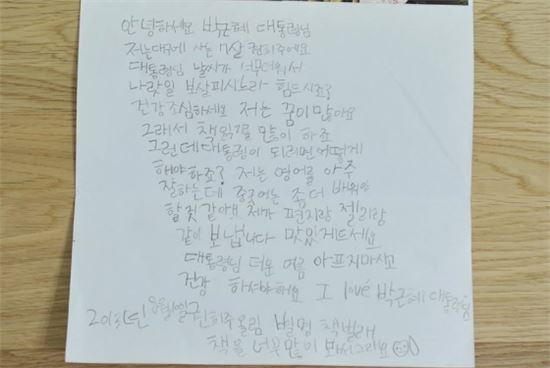 안녕하세요 박근혜 대통령님
저는대구에 사는 7살 권희주에요
대통령님 날씨가 너무더워서
나랏일 보살피시느라 힘드시죠?
건강조심하세요 저는 꿈이많아요
그래서 책읽기를 많이 하죠
그런데대통령이 되려면어떻게
해야하죠? 저는 영어를 아주
잘하는데 중국어는 좀더 배워야
할것 같아요 제가 편지랑 젤리랑
같이 보냅니다 맛있게드세요
대통령님 더운 여름 아프지마시고
건강 하셔야해요 I love 박근혜 대통령님
8월 권희주올림 별명 책벌래
책을 너무많이 봐서그래요